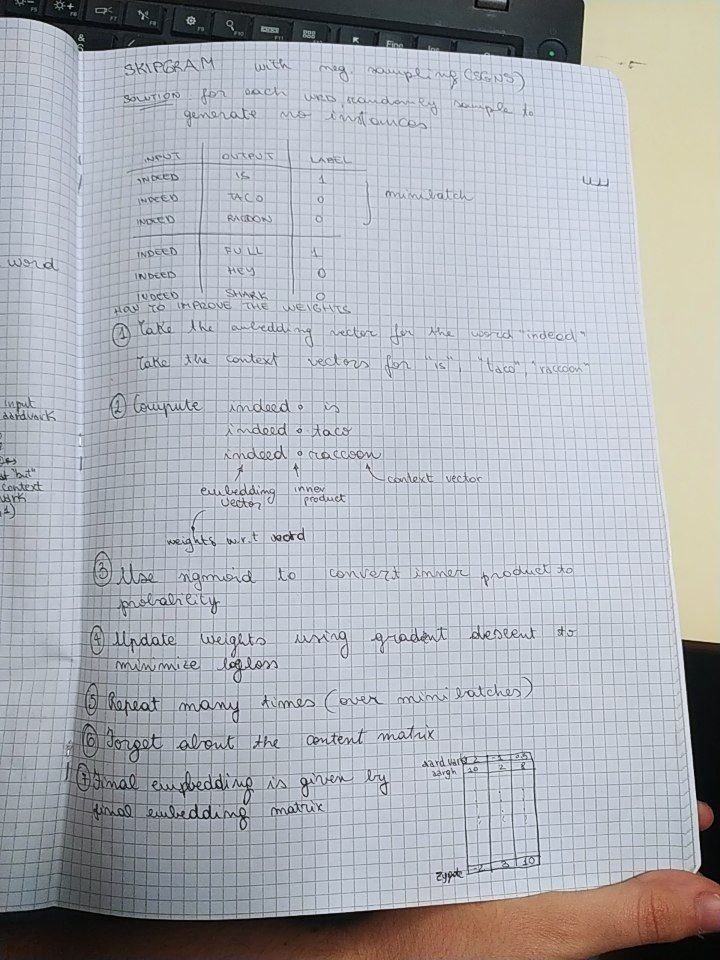 SKIPGRAM with neg. sampling (SGNS)
SOLUTION for each WRD, randomly sample to
generate no instances
INPUT OUTPUT LABEL
INDEED IS 1
INDEED TACO 0
INDEED RACOON 0
minibatch
INDEED FULL 1
INDEED HEY 0
INDEED SHARK 0
HOW TO IMPROVE THE WEIGHTS
① Take the embedding vector for the word "indeed"
Take the context vectors for "is", "taco", "raccoon"
② Compute indeed • is
indeed • taco
indeed • raccoon
embedding vector
inner product
context vector
weights w.r.t word
③ Use sigmoid to convert inner product to
probability
④ Update weights using gradent descent to
minimize logloss
⑤ Repeat many times (over minibatches)
⑥ Forget about the content matrix
⑦ Final embedding is given by
final embedding matrix
aardvark 2 -1 0.5
aargh 10 2 8
-2 3 10
word
input
aardvark
"but"
context